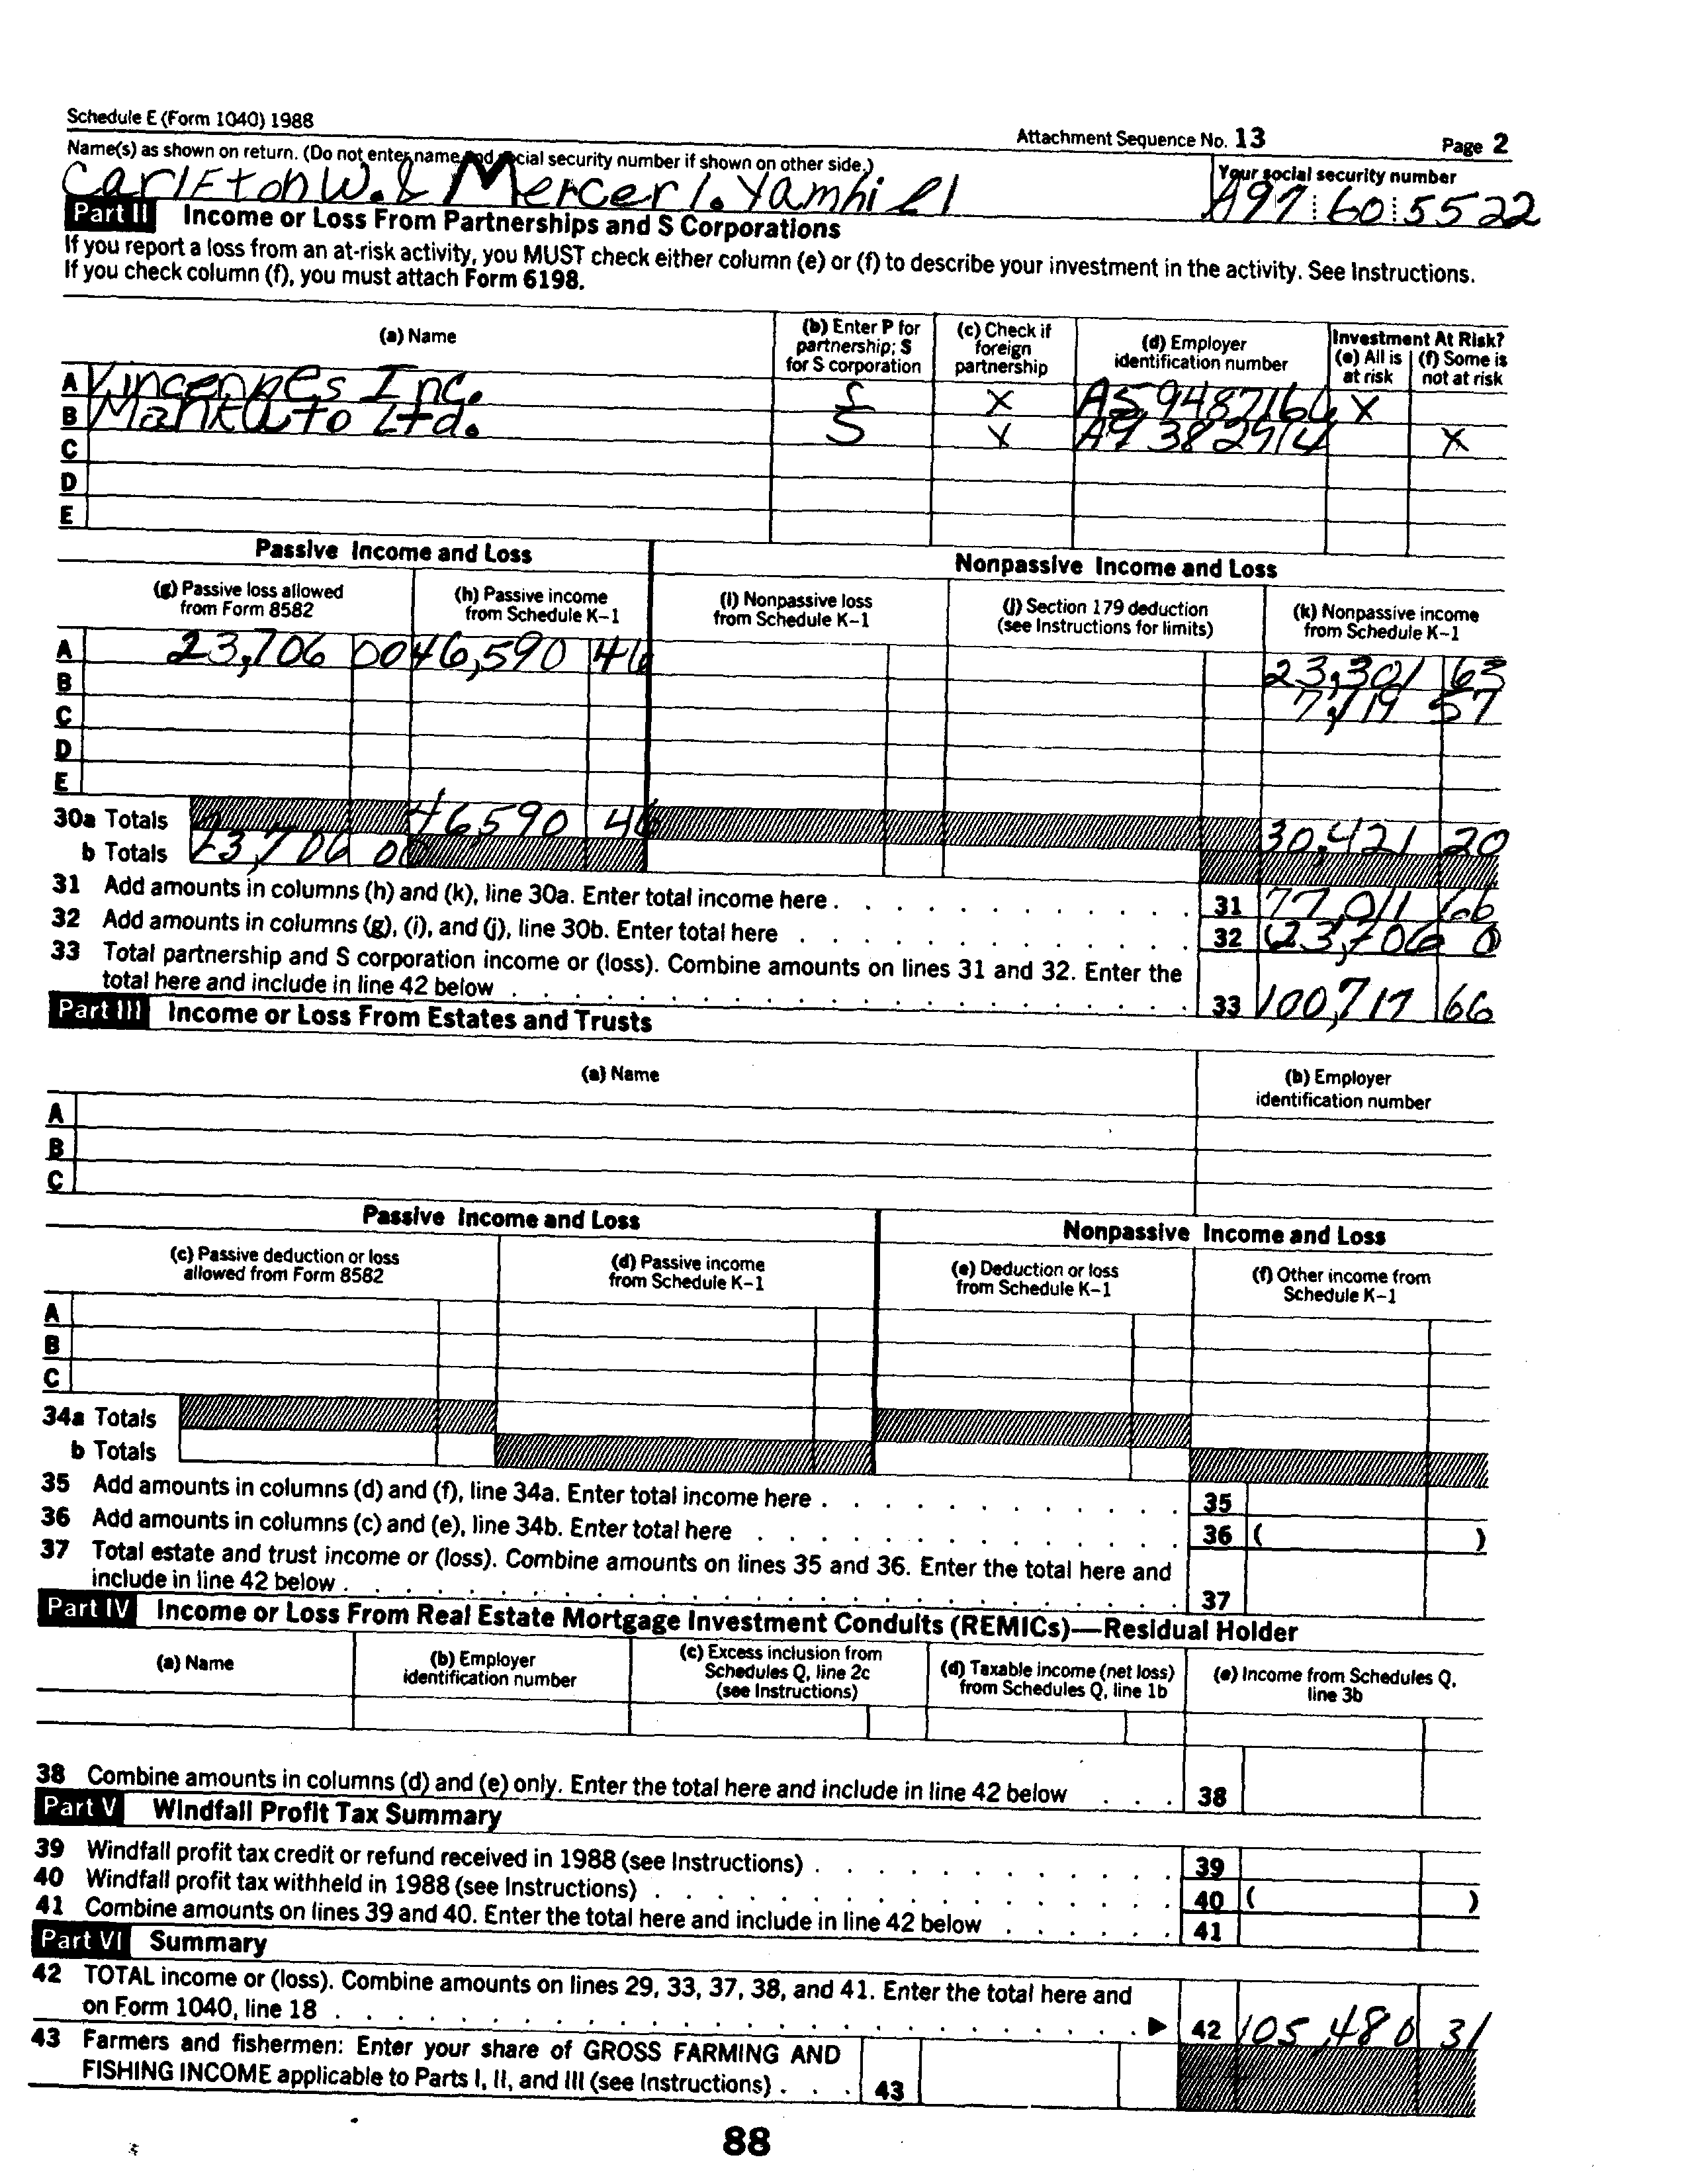 Schedule E (Form 1040) 1988
Attachment Sequence No. 13 Page 2
Name(s) as shown on return. (Do not enter name and social security number if shown on other side.)
Your social security number
CarlEton W. & Mercer I. Yamhill
A97 60 5522
Part II Income or Loss From Partnerships and S Corporations
If you report a loss from an at-risk activity, you MUST check either column (e) or (f) to describe your investment in the activity. See Instructions.
If you check column (f), you must attach Form 6198.
(a) Name
(b) Enter P for partnership; S for S corporation
(c) Check if foreign partnership
(d) Employer identification number
Investment At Risk?
(e) All is at risk
(f) Some is not at risk
A Vincennes Inc. S X A59487166 X
B Mankato Ltd. S X A93382914 X
C
D
E
Passive Income and Loss
Nonpassive Income and Loss
(g) Passive loss allowed from Form 8582
(h) Passive income from Schedule K-1
(i) Nonpassive loss from Schedule K-1
(j) Section 179 deduction (see Instructions for limits)
(k) Nonpassive income from Schedule K-1
A 23,706 00 46,590 46 23,301 63
B 7,119 57
C
D
E
30a Totals 46590 46 30,421 20
b Totals 23,706 00
31 Add amounts in columns (h) and (k), line 30a. Enter total income here 31 77,011 66
32 Add amounts in columns (g), (i), and (j), line 30b. Enter total here 32 (23,706 0)
33 Total partnership and S corporation income or (loss). Combine amounts on lines 31 and 32. Enter the
total here and include in line 42 below 33 100,717 66
Part III Income or Loss From Estates and Trusts
(a) Name
(b) Employer identification number
A
B
C
Passive Income and Loss
Nonpassive Income and Loss
(c) Passive deduction or loss allowed from Form 8582
(d) Passive income from Schedule K-1
(e) Deduction or loss from Schedule K-1
(f) Other income from Schedule K-1
A
B
C
34a Totals
b Totals
35 Add amounts in columns (d) and (f), line 34a. Enter total income here 35
36 Add amounts in columns (c) and (e), line 34b. Enter total here 36 ( )
37 Total estate and trust income or (loss). Combine amounts on lines 35 and 36. Enter the total here and
include in line 42 below 37
Part IV Income or Loss From Real Estate Mortgage Investment Conduits (REMICs)—Residual Holder
(a) Name
(b) Employer identification number
(c) Excess inclusion from Schedules Q, line 2c (see Instructions)
(d) Taxable income (net loss) from Schedules Q, line 1b
(e) Income from Schedules Q, line 3b
38 Combine amounts in columns (d) and (e) only. Enter the total here and include in line 42 below 38
Part V Windfall Profit Tax Summary
39 Windfall profit tax credit or refund received in 1988 (see Instructions) 39
40 Windfall profit tax withheld in 1988 (see Instructions) 40 ( )
41 Combine amounts on lines 39 and 40. Enter the total here and include in line 42 below 41
Part VI Summary
42 TOTAL income or (loss). Combine amounts on lines 29, 33, 37, 38, and 41. Enter the total here and
on Form 1040, line 18 ▶ 42 105,480 31
43 Farmers and fishermen: Enter your share of GROSS FARMING AND
FISHING INCOME applicable to Parts I, II, and III (see Instructions) 43
88